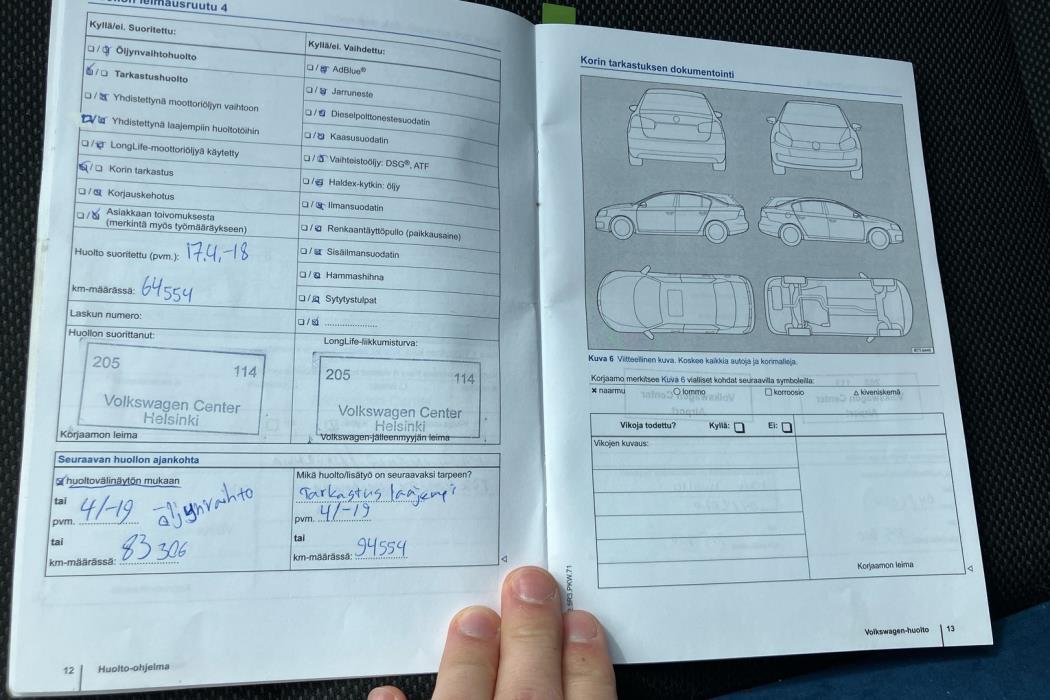 leimausruutu 4
Kyllä/ei. Suoritettu:
Öljynvaihtohuolto
Tarkastushuolto
Yhdistettynä moottoriöljyn vaihtoon
Yhdistettynä laajempiin huoltotöihin
LongLife-moottoriöljyä käytetty
Korin tarkastus
Korjauskehotus
Asiakkaan toivomuksesta
(merkintä myös työmääräykseen)
Huolto suoritettu (pvm.): 17.4.-18
km-määrässä: 64554
Laskun numero:
Huollon suorittanut:
205 114
Volkswagen Center
Helsinki
Korjaamon leima
Kyllä/ei. Vaihdettu:
AdBlue®
Jarruneste
Dieselpolttonestesuodatin
Kaasusuodatin
Vaihteistoöljy: DSG®, ATF
Haldex-kytkin: öljy
Ilmansuodatin
Renkaantäyttöpullo (paikkausaine)
Sisäilmansuodatin
Hammashihna
Sytytystulpat
LongLife-liikkumisturva:
205 114
Volkswagen Center
Helsinki
Volkswagen-jälleenmyyjän leima
Seuraavan huollon ajankohta
huoltovälinäytön mukaan
tai
pvm. 4/-19 öljynvaihto
tai
km-määrässä: 83 306
Mikä huolto/lisätyö on seuraavaksi tarpeen?
Tarkastus laajempi
pvm. 4/-19
tai
km-määrässä: 94554
12 Huolto-ohjelma
Korin tarkastuksen dokumentointi
Kuva 6 Viitteellinen kuva. Koskee kaikkia autoja ja korimalleja.
Korjaamo merkitsee Kuva 6 vialliset kohdat seuraavilla symboleilla:
x naarmu O lommo □ korroosio Δ kiveniskemä
Vikoja todettu? Kyllä: Ei:
Vikojen kuvaus:
Korjaamon leima
Volkswagen-huolto 13